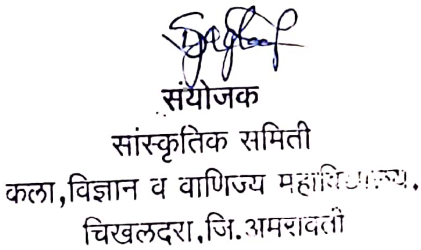 संयोजक
सांस्कृतिक समिती
कला,विज्ञान व वाणिज्य
चिखलदरा,जि.अमरावती